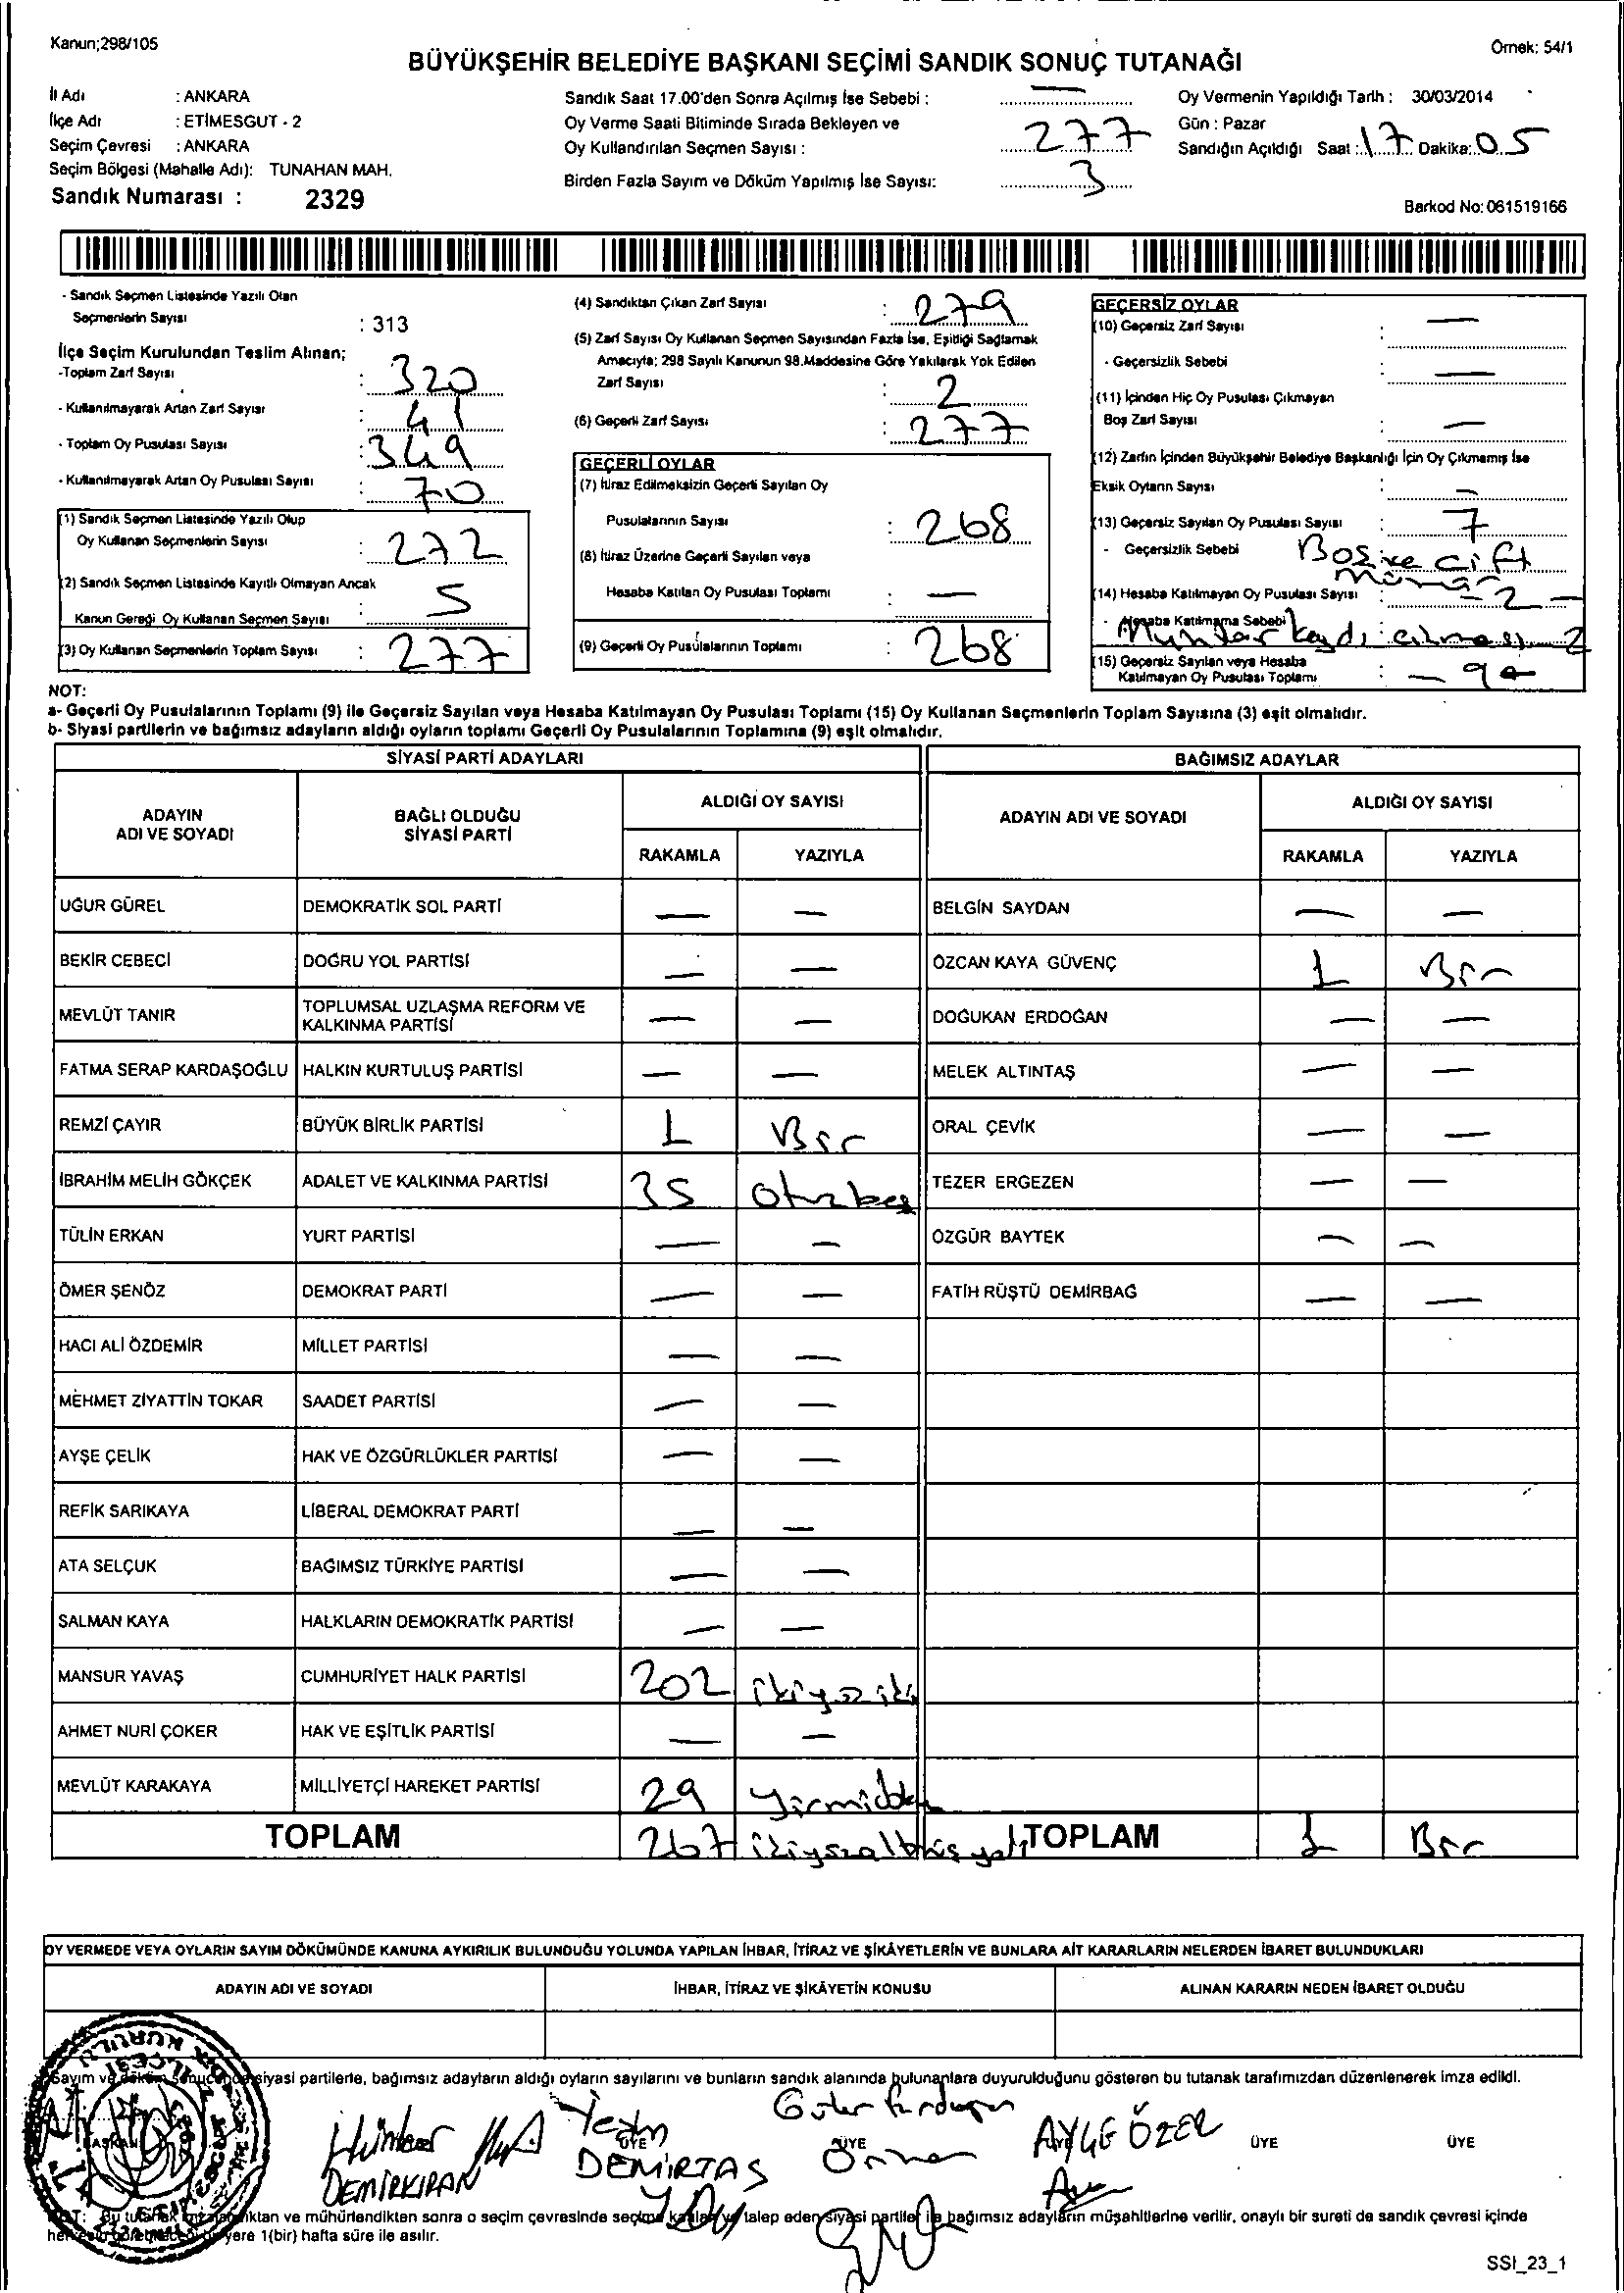 Kanun;298/105
Örnek: 54/1
BÜYÜKŞEHİR BELEDİYE BAŞKANI SEÇİMİ SANDIK SONUÇ TUTANAĞI
İl Adı : ANKARA
İlçe Adı : ETİMESGUT - 2
Seçim Çevresi : ANKARA
Seçim Bölgesi (Mahalle Adı): TUNAHAN MAH.
Sandık Numarası : 2329
Sandık Saat 17.00'den Sonra Açılmış İse Sebebi : —
Oy Verme Saati Bitiminde Sırada Bekleyen ve
Oy Kullandırılan Seçmen Sayısı : 277
Birden Fazla Sayım ve Döküm Yapılmış İse Sayısı: 3
Oy Vermenin Yapıldığı Tarih : 30/03/2014
Gün : Pazar
Sandığın Açıldığı Saat : 17 Dakika: 05
Barkod No: 061519166
- Sandık Seçmen Listesinde Yazılı Olan
Seçmenlerin Sayısı : 313
İlçe Seçim Kurulundan Teslim Alınan;
-Toplam Zarf Sayısı : 320
- Kullanılmayarak Artan Zarf Sayısı : 41
- Toplam Oy Pusulası Sayısı : 349
- Kullanılmayarak Artan Oy Pusulası Sayısı : 70
(1) Sandık Seçmen Listesinde Yazılı Olup
Oy Kullanan Seçmenlerin Sayısı : 272
(2) Sandık Seçmen Listesinde Kayıtlı Olmayan Ancak
Kanun Gereği Oy Kullanan Seçmen Sayısı : 5
(3) Oy Kullanan Seçmenlerin Toplam Sayısı : 277
(4) Sandıktan Çıkan Zarf Sayısı : 279
(5) Zarf Sayısı Oy Kullanan Seçmen Sayısından Fazla İse, Eşitliği Sağlamak
Amacıyla; 298 Sayılı Kanunun 98.Maddesine Göre Yakılarak Yok Edilen
Zarf Sayısı : 2
(6) Geçerli Zarf Sayısı : 277
GEÇERLİ OYLAR
(7) İtiraz Edilmeksizin Geçerli Sayılan Oy
Pusulalarının Sayısı : 268
(8) İtiraz Üzerine Geçerli Sayılan veya
Hesaba Katılan Oy Pusulası Toplamı : —
(9) Geçerli Oy Pusulalarının Toplamı : 268
GEÇERSİZ OYLAR
(10) Geçersiz Zarf Sayısı : —
- Geçersizlik Sebebi : —
(11) İçinden Hiç Oy Pusulası Çıkmayan
Boş Zarf Sayısı : —
(12) Zarfın İçinden Büyükşehir Belediye Başkanlığı İçin Oy Çıkmamış İse
Eksik Oyların Sayısı : —
(13) Geçersiz Sayılan Oy Pusulası Sayısı : 7
- Geçersizlik Sebebi Boş ve Çift
(14) Hesaba Katılmayan Oy Pusulası Sayısı : - 2 -
- Hesaba Katılmama Sebebi Muhtar çıkması 2
(15) Geçersiz Sayılan veya Hesaba
Katılmayan Oy Pusulası Toplamı : - 9 -
NOT:
a- Geçerli Oy Pusulalarının Toplamı (9) ile Geçersiz Sayılan veya Hesaba Katılmayan Oy Pusulası Toplamı (15) Oy Kullanan Seçmenlerin Toplam Sayısına (3) eşit olmalıdır.
b- Siyasi partilerin ve bağımsız adayların aldığı oyların toplamı Geçerli Oy Pusulalarının Toplamına (9) eşit olmalıdır.
SİYASİ PARTİ ADAYLARI
ADAYIN ADI VE SOYADI
BAĞLI OLDUĞU SİYASİ PARTİ
ALDIĞI OY SAYISI
RAKAMLA YAZIYLA
UĞUR GÜREL DEMOKRATİK SOL PARTİ — —
BEKİR CEBECİ DOĞRU YOL PARTİSİ — —
MEVLÜT TANIR TOPLUMSAL UZLAŞMA REFORM VE KALKINMA PARTİSİ — —
FATMA SERAP KARDAŞOĞLU HALKIN KURTULUŞ PARTİSİ — —
REMZİ ÇAYIR BÜYÜK BİRLİK PARTİSİ 1 Bir
İBRAHİM MELİH GÖKÇEK ADALET VE KALKINMA PARTİSİ 35 Otuzbeş
TÜLİN ERKAN YURT PARTİSİ — —
ÖMER ŞENÖZ DEMOKRAT PARTİ — —
HACI ALİ ÖZDEMİR MİLLET PARTİSİ — —
MEHMET ZİYATTİN TOKAR SAADET PARTİSİ — —
AYŞE ÇELİK HAK VE ÖZGÜRLÜKLER PARTİSİ — —
REFİK SARIKAYA LİBERAL DEMOKRAT PARTİ — —
ATA SELÇUK BAĞIMSIZ TÜRKİYE PARTİSİ — —
SALMAN KAYA HALKLARIN DEMOKRATİK PARTİSİ — —
MANSUR YAVAŞ CUMHURİYET HALK PARTİSİ 202 ikiyüziki
AHMET NURİ ÇOKER HAK VE EŞİTLİK PARTİSİ — —
MEVLÜT KARAKAYA MİLLİYETÇİ HAREKET PARTİSİ 29 Yirmidokuz
TOPLAM 267 ikiyüzaltmışyedi
BAĞIMSIZ ADAYLAR
ADAYIN ADI VE SOYADI
ALDIĞI OY SAYISI
RAKAMLA YAZIYLA
BELGİN SAYDAN — —
ÖZCAN KAYA GÜVENÇ 1 Bir
DOĞUKAN ERDOĞAN — —
MELEK ALTINTAŞ — —
ORAL ÇEVİK — —
TEZER ERGEZEN — —
ÖZGÜR BAYTEK — —
FATİH RÜŞTÜ DEMİRBAĞ — —
TOPLAM 1 Bir
OY VERMEDE VEYA OYLARIN SAYIM DÖKÜMÜNDE KANUNA AYKIRILIK BULUNDUĞU YOLUNDA YAPILAN İHBAR, İTİRAZ VE ŞİKÂYETLERİN VE BUNLARA AİT KARARLARIN NELERDEN İBARET BULUNDUKLARI
ADAYIN ADI VE SOYADI
İHBAR, İTİRAZ VE ŞİKÂYETİN KONUSU
ALINAN KARARIN NEDEN İBARET OLDUĞU
Sayım ve döküm sonucunda siyasi partilerle, bağımsız adayların aldığı oyların sayılarını ve bunların sandık alanında bulunanlara duyurulduğunu gösteren bu tutanak tarafımızdan düzenlenerek imza edildi.
BAŞKAN
DEMİRKIRAN
ÜYE
DEMİRTAŞ
ÜYE
AYŞE ÖZEL
ÜYE
ÜYE
NOT: Bu tutanak seçim çevresinde seçime katılan ve talep eden siyasi partiler ile bağımsız adayların müşahitlerine verilir, onaylı bir sureti de sandık çevresi içinde
herkesin görebileceği bir yere 1(bir) hafta süre ile asılır.
SSI_23_1